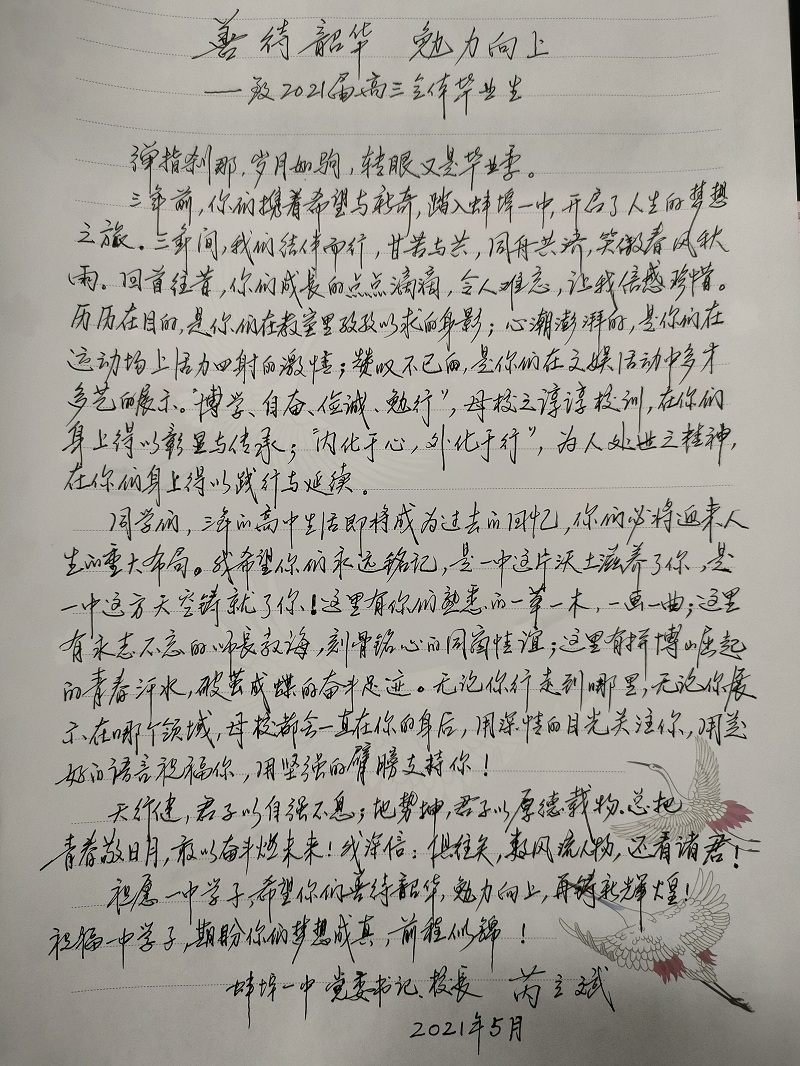 善待韶华 勉力向上
——致2021届高三全体毕业生
弹指刹那，岁月如驹，转眼又是毕业季。
三年前，你们携着希望与新奇，踏入蚌埠一中，开启了人生的梦想
之旅。三年间，我们结伴而行，甘苦与共，同舟共济，笑傲春风秋
雨。回首往昔，你们成长的点点滴滴，令人难忘，让我倍感珍惜。
历历在目的，是你们在教室里孜孜以求的身影；心潮澎湃的，是你们在
运动场上活力四射的激情；赞叹不已的，是你们在文娱活动中多才
多艺的展示。“博学、自奋、俭诚、勉行”，母校之谆谆校训，在你们
身上得以彰显与传承；“内化于心，外化于行”，为人处世之精神，
在你们身上得以践行与延续。
同学们，三年的高中生活即将成为过去的回忆，你们必将迎来人
生的重大布局。我希望你们永远铭记，是一中这片沃土滋养了你，是
一中这方天空铸就了你！这里有你们熟悉的一草一木，一画一曲；这里
有永志不忘的师长教诲，刻骨铭心的同窗情谊；这里有拼搏崛起
的青春汗水，破茧成蝶的奋斗足迹。无论你行走到哪里，无论你展
示在哪个领域，母校都会一直在你的身后，用深情的目光关注你，用美
好的语言祝福你，用坚强的臂膀支持你！
天行健，君子以自强不息；地势坤，君子以厚德载物。总把
青春敬日月，敢以奋斗燃未来！我深信：俱往矣，数风流人物，还看诸君！
祝愿一中学子，希望你们善待韶华，勉力向上，再铸新辉煌！
祝福一中学子，期盼你们梦想成真，前程似锦！
蚌埠一中 党委书记、校长 芮立斌
2021年5月